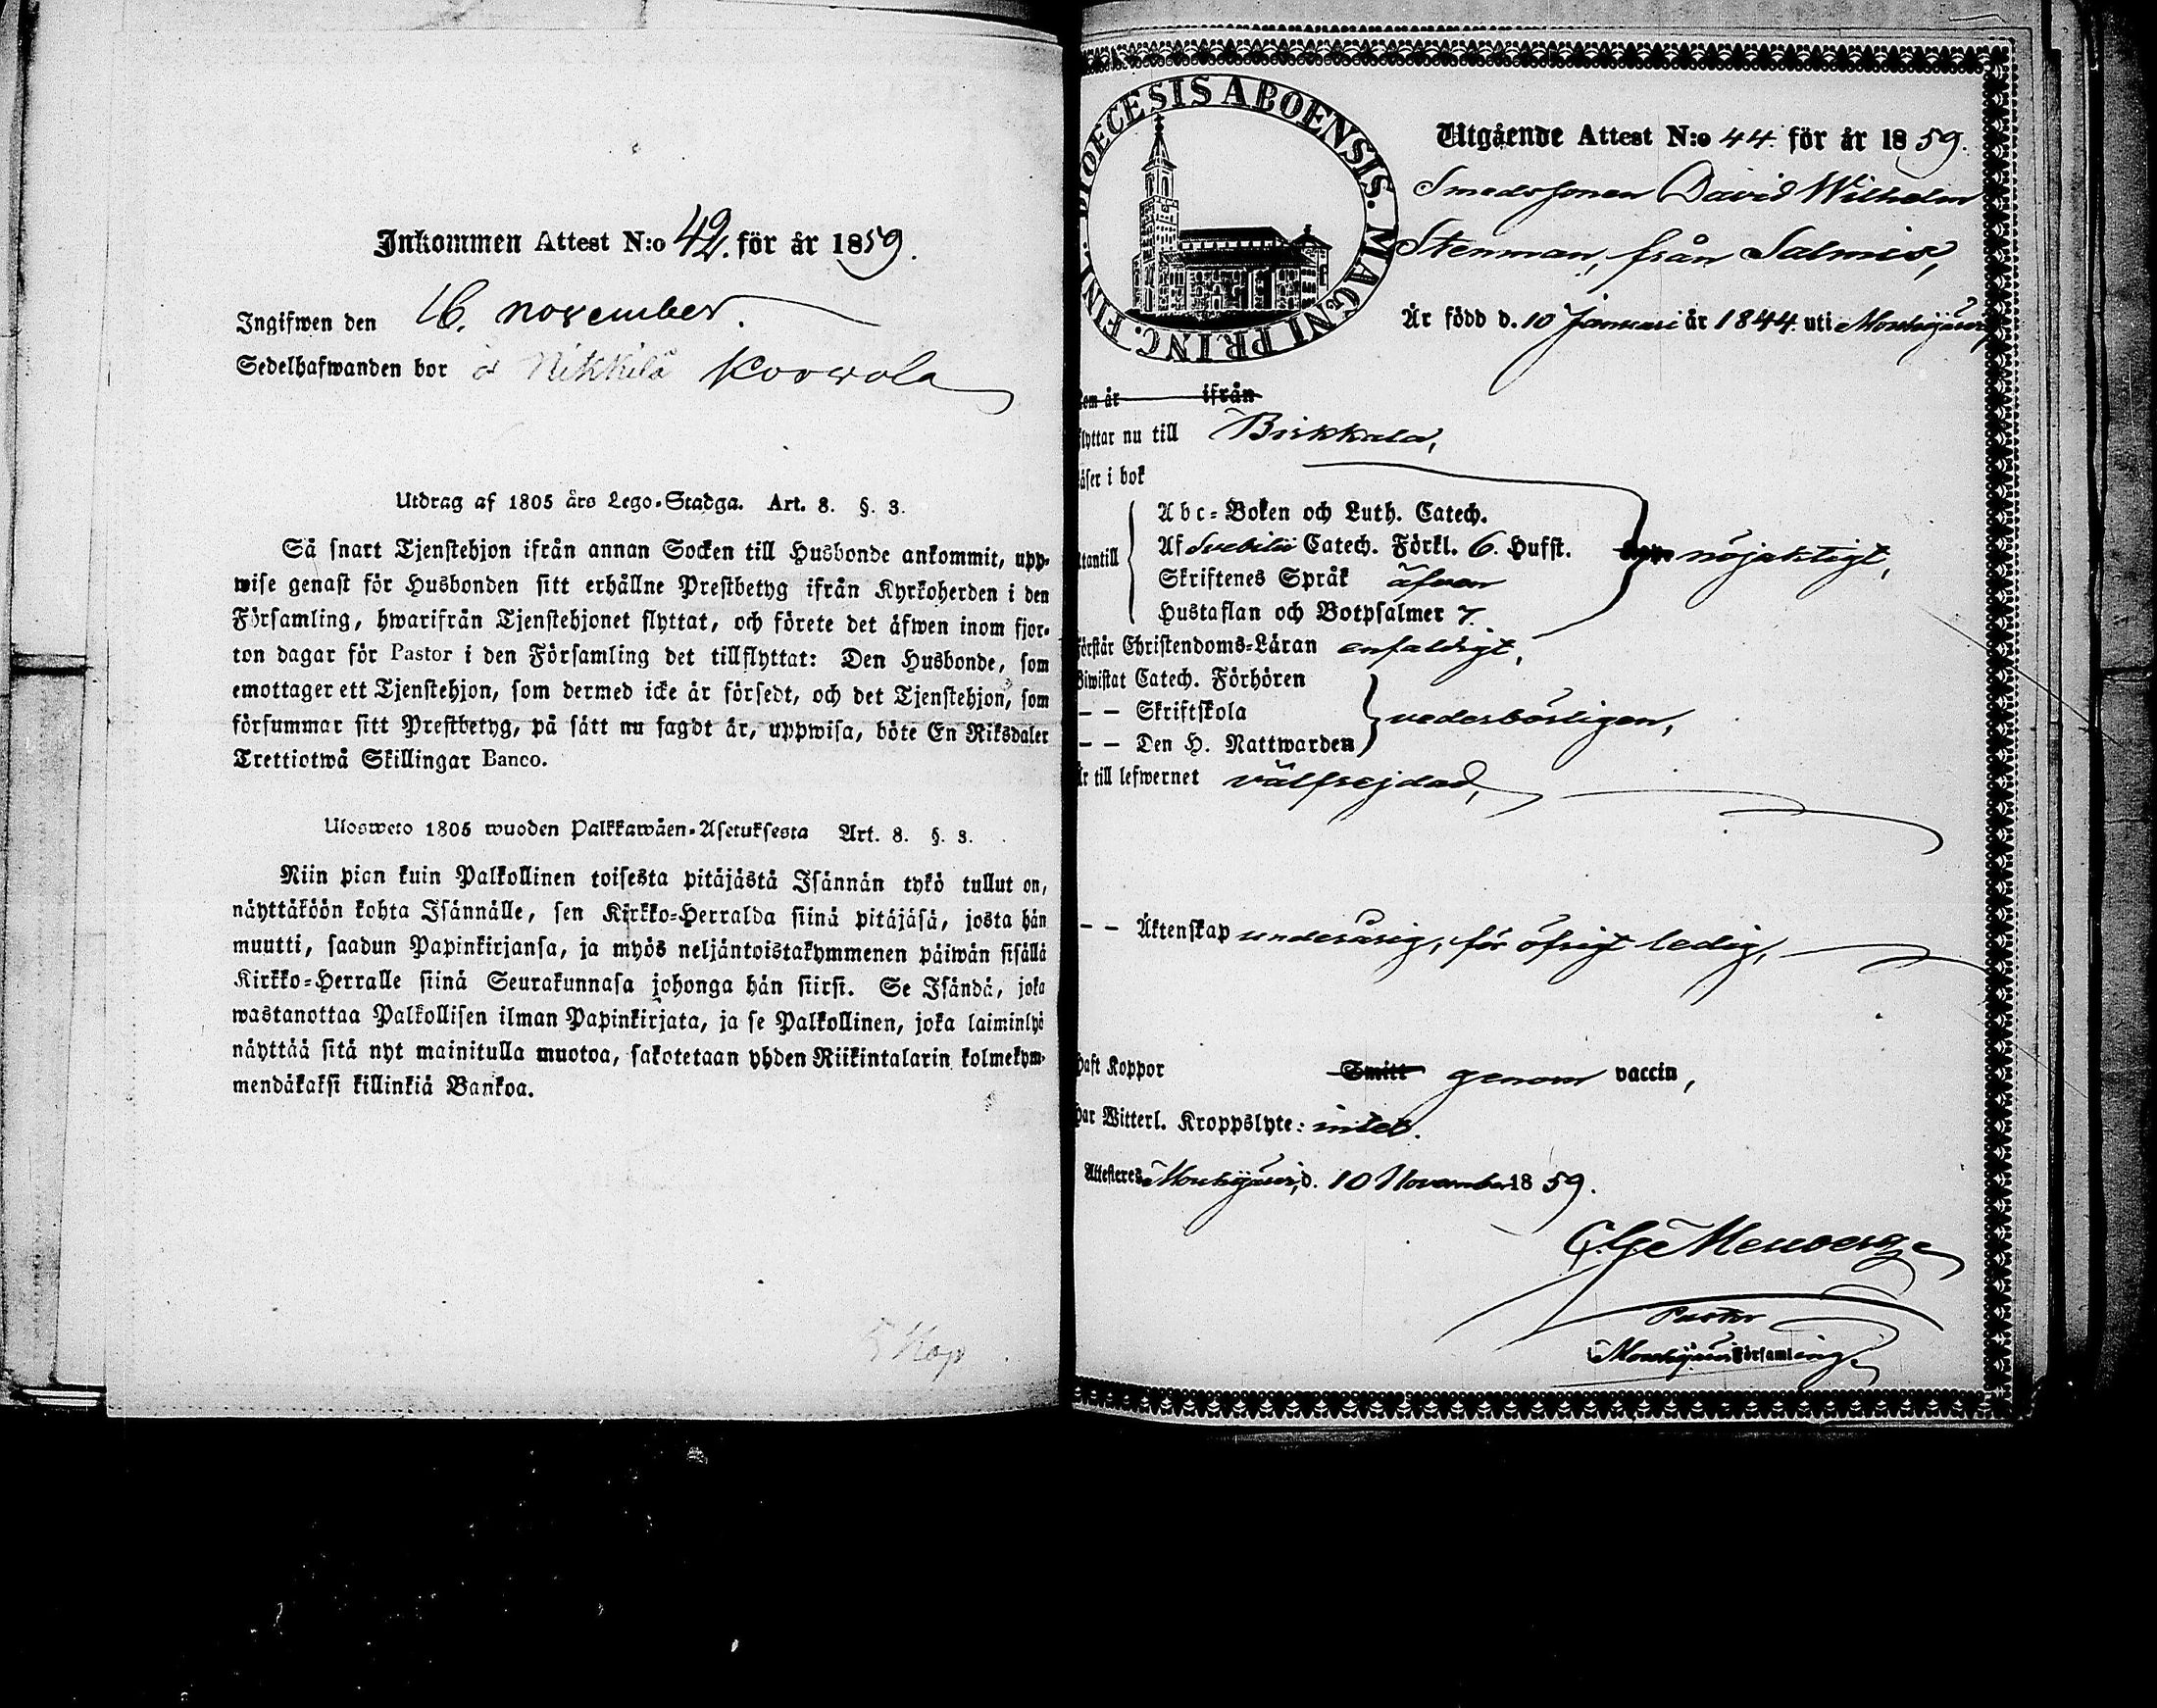 Inkommen Attest N:o 42. för år 1859.
Ingifwen den 16. november.
Sedelhafwanden bor å Nikkilä Koowola
Utdrag af 1805 års Lego-Stadga. Art. 8. §. 3.
Så snart Tjenstehjon ifrån annan Socken till Husbonde ankommit, upp-
wise genast för Husbonden sitt erhållne Prestbetyg ifrån Kyrkoherden i den
Församling, hwarifrån Tjenstehjonet flyttat, och förete det äfwen inom fjor-
ton dagar för Pastor i den Församling det tillflyttat: Den Husbonde, som
emottager ett Tjenstehjon, som dermed icke är försedt, och det Tjenstehjon, som
försummar sitt Prestbetyg, på sätt nu sagdt är, uppwisa, böte En Riksdaler
Trettiotwå Skillingar Banco.
Ulosweto 1805 wuoden Palkkawäen-Asetuksesta Art. 8. §. 3.
Niin pian kuin Palkollinen toisesta pitäjästä Isännän tykö tullut on,
näyttäköön kohta Isännälle, sen Kirkko-Herralda siinä pitäjäsä, josta hän
muutti, saadun Papinkirjansa, ja myös neljäntoistakymmenen päiwän sisällä
Kirkko-Herralle siinä Seurakunnasa johonga hän siirsi. Se Isändä, joka
wastanottaa Palkollisen ilman Papinkirjata, ja se Palkollinen, joka laiminlyö
näyttää sitä nyt mainitulla muotoa, sakotetaan yhden Riikintalarin kolmekym-
mendäkaksi killinkiä Bankoa.
5 Kop
DIOECESIS ABOENSIS. MAGNI PRINC. FINL.
Utgående Attest N:o 44. för år 1859.
Smedssonen David Wilhelm
Stenman, från Salmis,
Är född d. 10 Januari år 1844 uti Mouhijärvi,
kom år ifrån
flyttar nu till Birkkala,
läser i bok
Abc-Boken och Luth. Catech.
utantill Af Svebilii Catech. Förkl. 6. Hufst. nöjaktigt,
Skriftenes Språk äfven
Hustaflan och Botpsalmer 7.
förstår Christendoms-Läran enfaldigt,
Biwistat Catech. Förhören
— — Skriftskola vederbörligen,
— — Den H. Nattwarden
Är till lefwernet välfrejdad,
— — Äktenskap underårig, för öfrigt ledig,
haft Koppor Smitt genom vaccin,
har Witterl. Kroppslyte: intet.
Attesteras Mouhijärvi, d. 10 November 1859.
Pastor
i Mouhijärvi Församling.